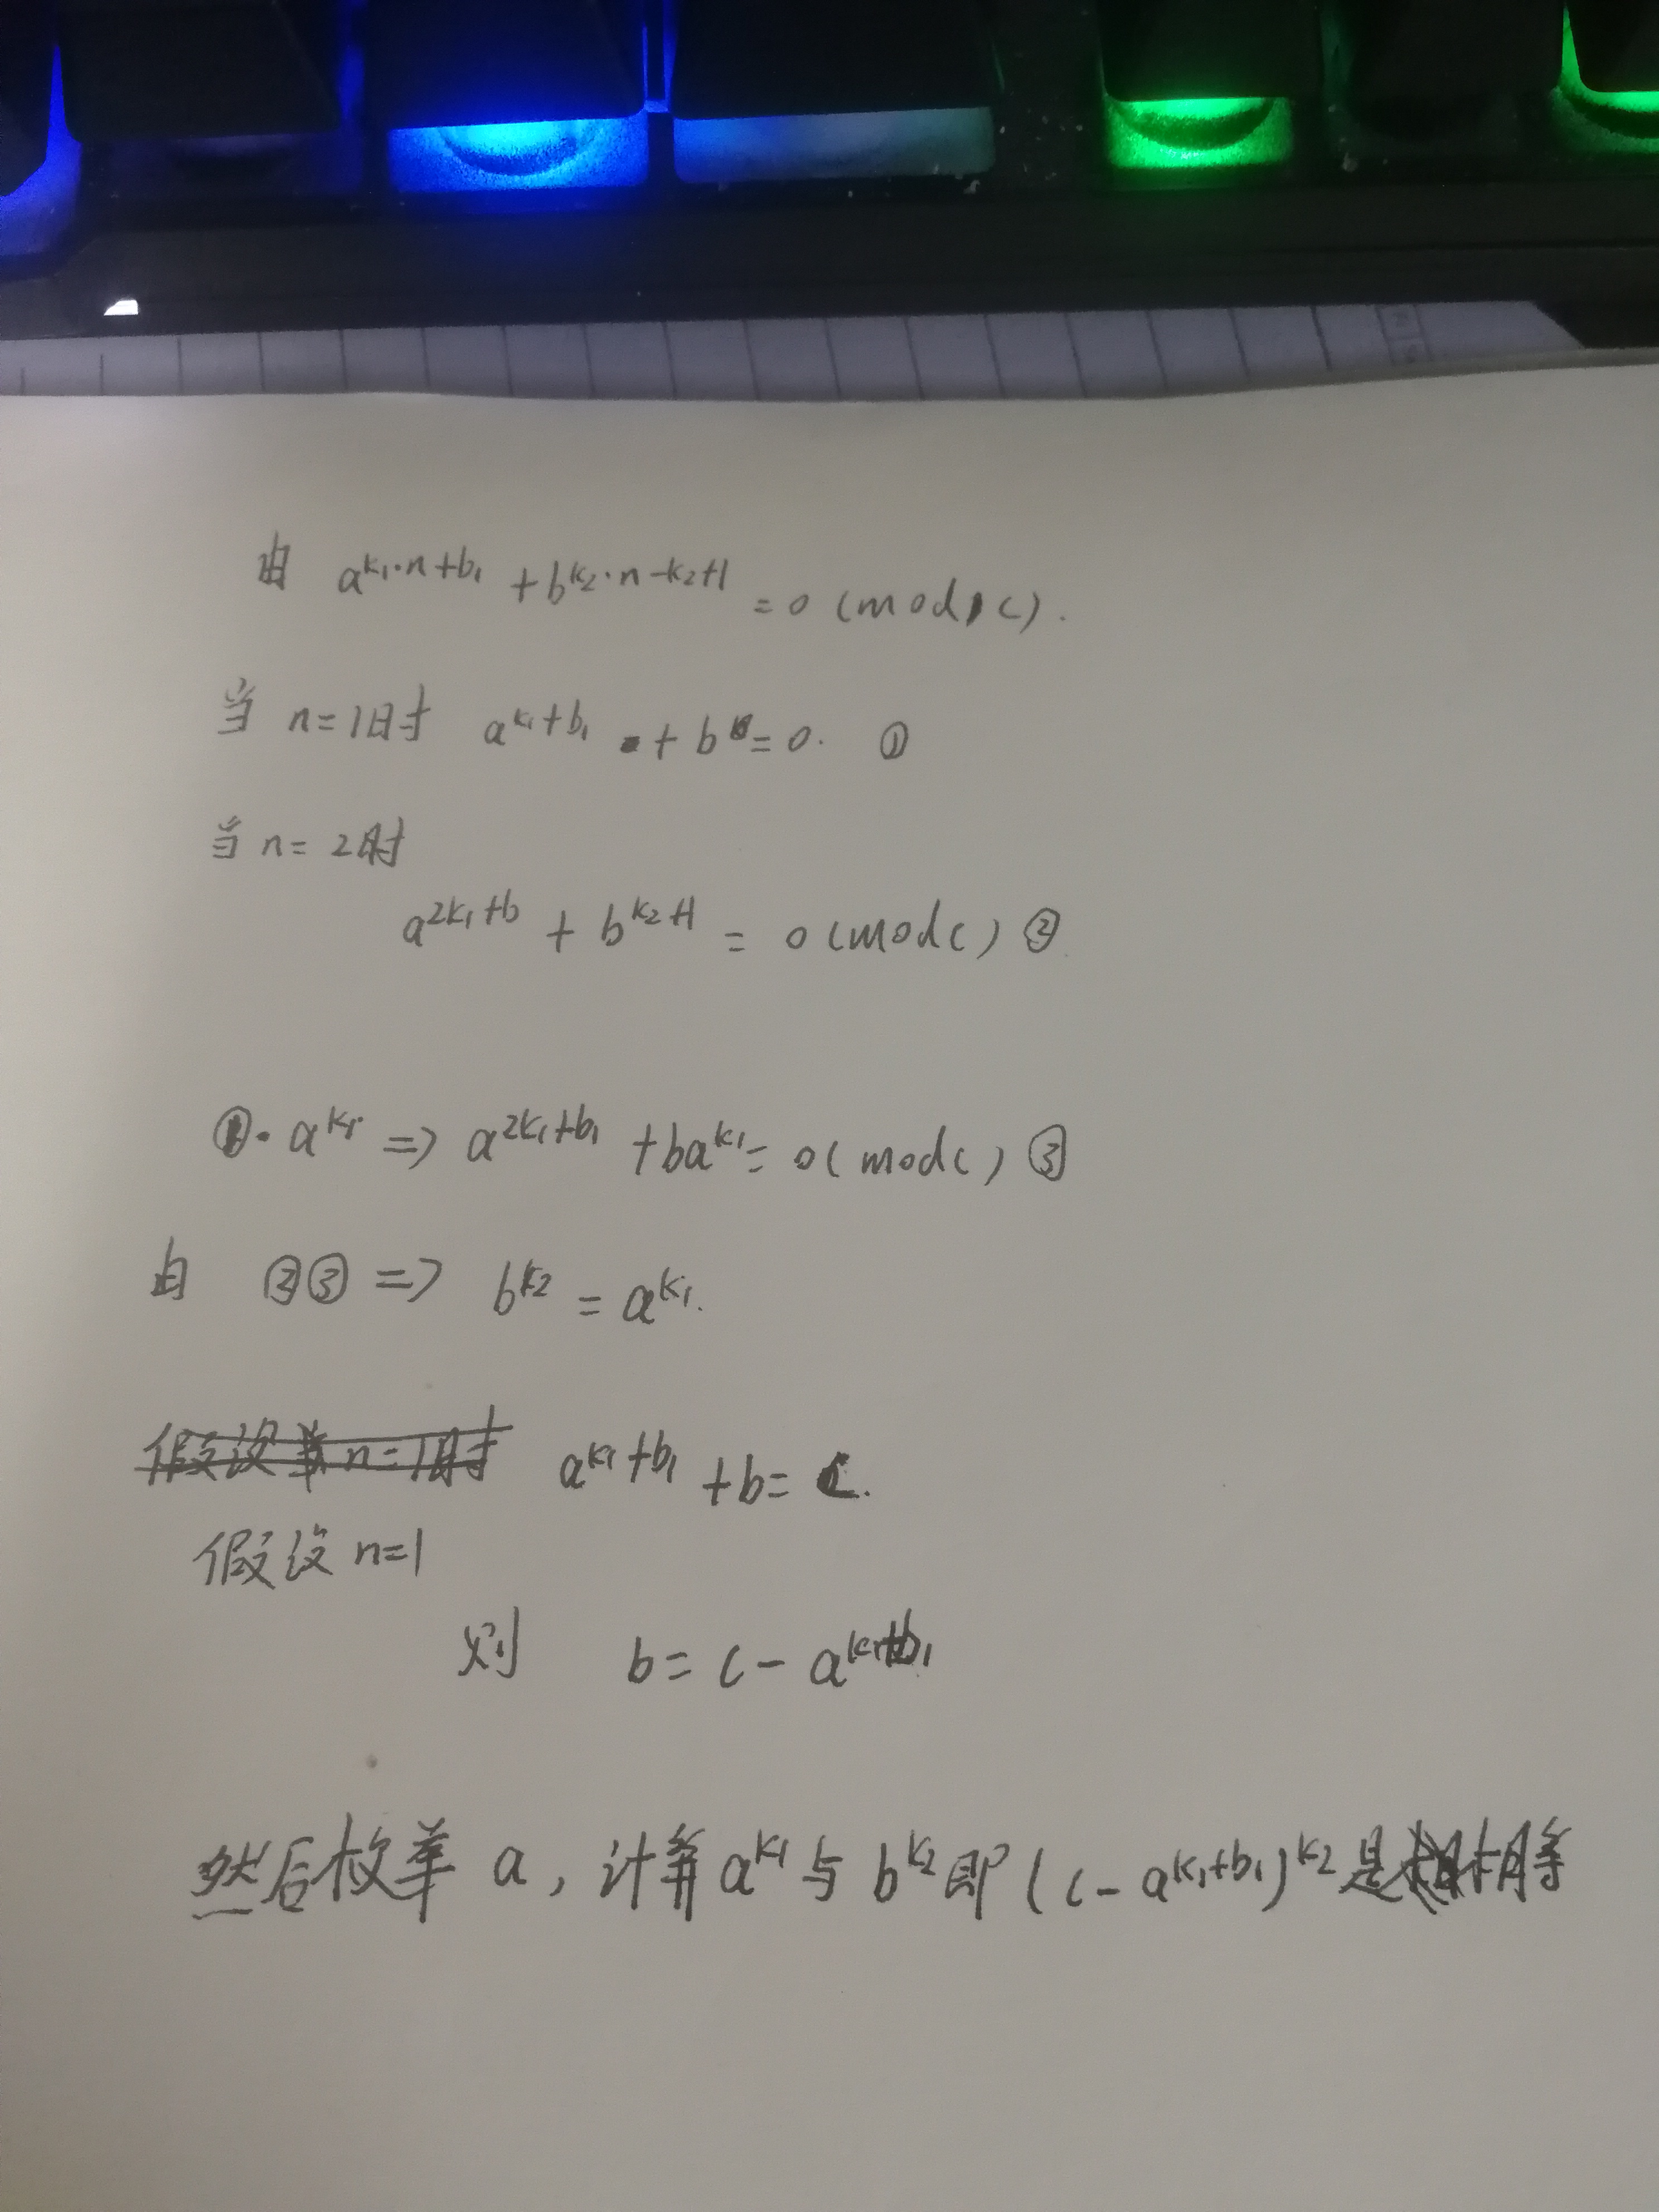 由 a^{k₁·n+b₁} + b^{k₂·n-k₂+1} = 0 (mod, c).
当 n=1时 a^{k₁+b₁} + b = 0. ①
当 n= 2时
a^{2k₁+b} + b^{k₂+1} = 0 (mod c) ②
①· a^{k₁} => a^{2k₁+b₁} + ba^{k₁} = 0 (mod c) ③
由 ②③ => b^{k₂} = a^{k₁}.
假设当n=1时 a^{k₁+b₁} + b = c.
假设 n=1
则 b = c - a^{k₁+b₁}
然后枚举 a, 计算 a^{k₁} 与 b^{k₂} 即 (c - a^{k₁+b₁})^{k₂} 是 相等